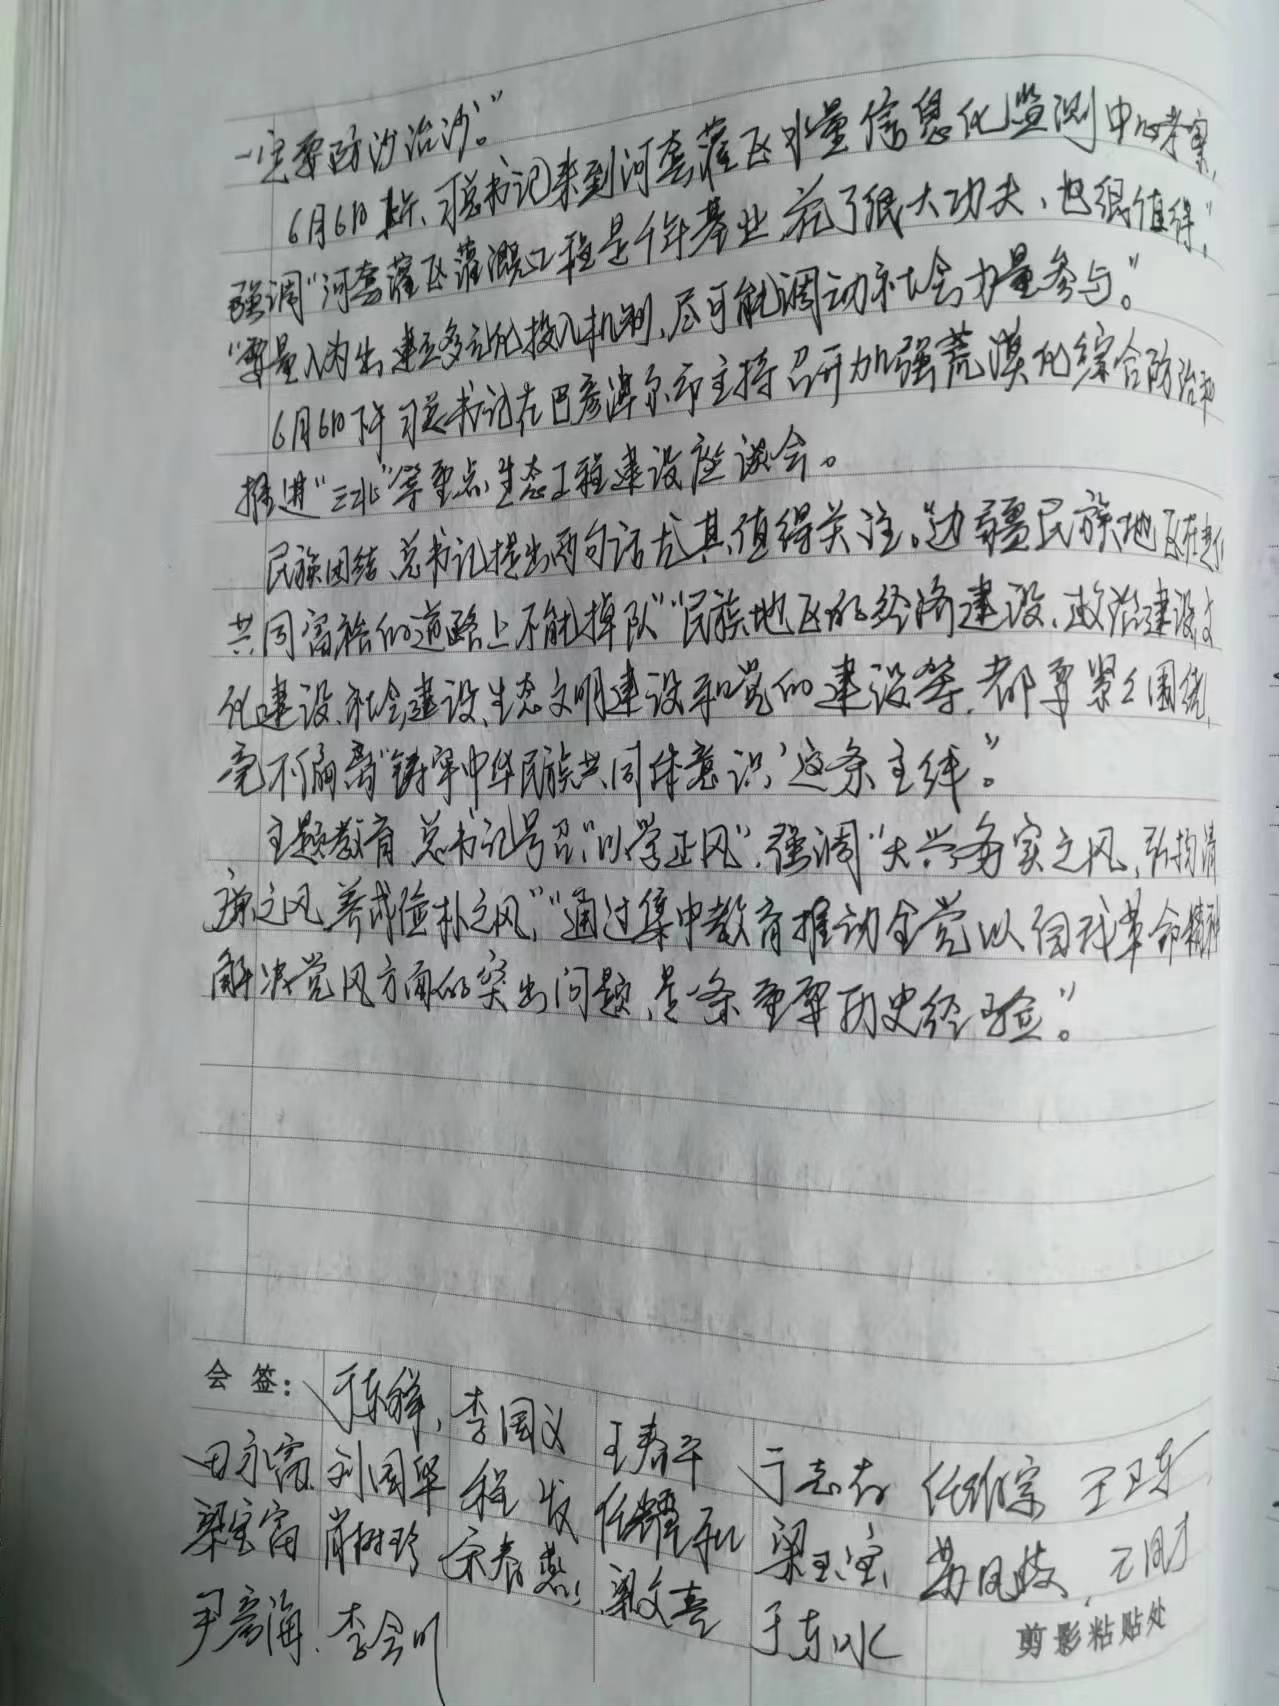 一定要防沙治沙。”
6月6日上午、习总书记来到河套灌区水量信息化监测中心考察,
强调“河套灌区灌溉工程是千年基业,花了很大功夫、也很值得”,
“要量入为出,建立多元化投入机制,尽可能调动社会力量参与。”
6月6日下午 习总书记在巴彦淖尔市主持召开加强荒漠化综合防治和
推进“三北”等重点生态工程建设座谈会。
民族团结、总书记提出两句话尤其值得关注。“边疆民族地区在走向
共同富裕的道路上不能掉队”“民族地区的经济建设、政治建设、文
化建设、社会建设、生态文明建设和党的建设等,都要紧紧围绕,
毫不偏离‘铸牢中华民族共同体意识’这条主线。”
主题教育,总书记号召“以学正风”,强调“大兴务实之风,弘扬清
廉之风,养成俭朴之风”,“通过集中教育推动全党以自我革命精神
解决党风方面的突出问题,是一条重要历史经验。”
会 签: 于东祥, 李国义 王春平 于志 任维宗 王卫东
田永富 刘国华 程发 任 和 梁玉宝 苏凤岐, 王刚才
梁宝富 肖树玲 宋春燕 梁文喜 于东水
尹彦海. 李会川
剪影粘贴处